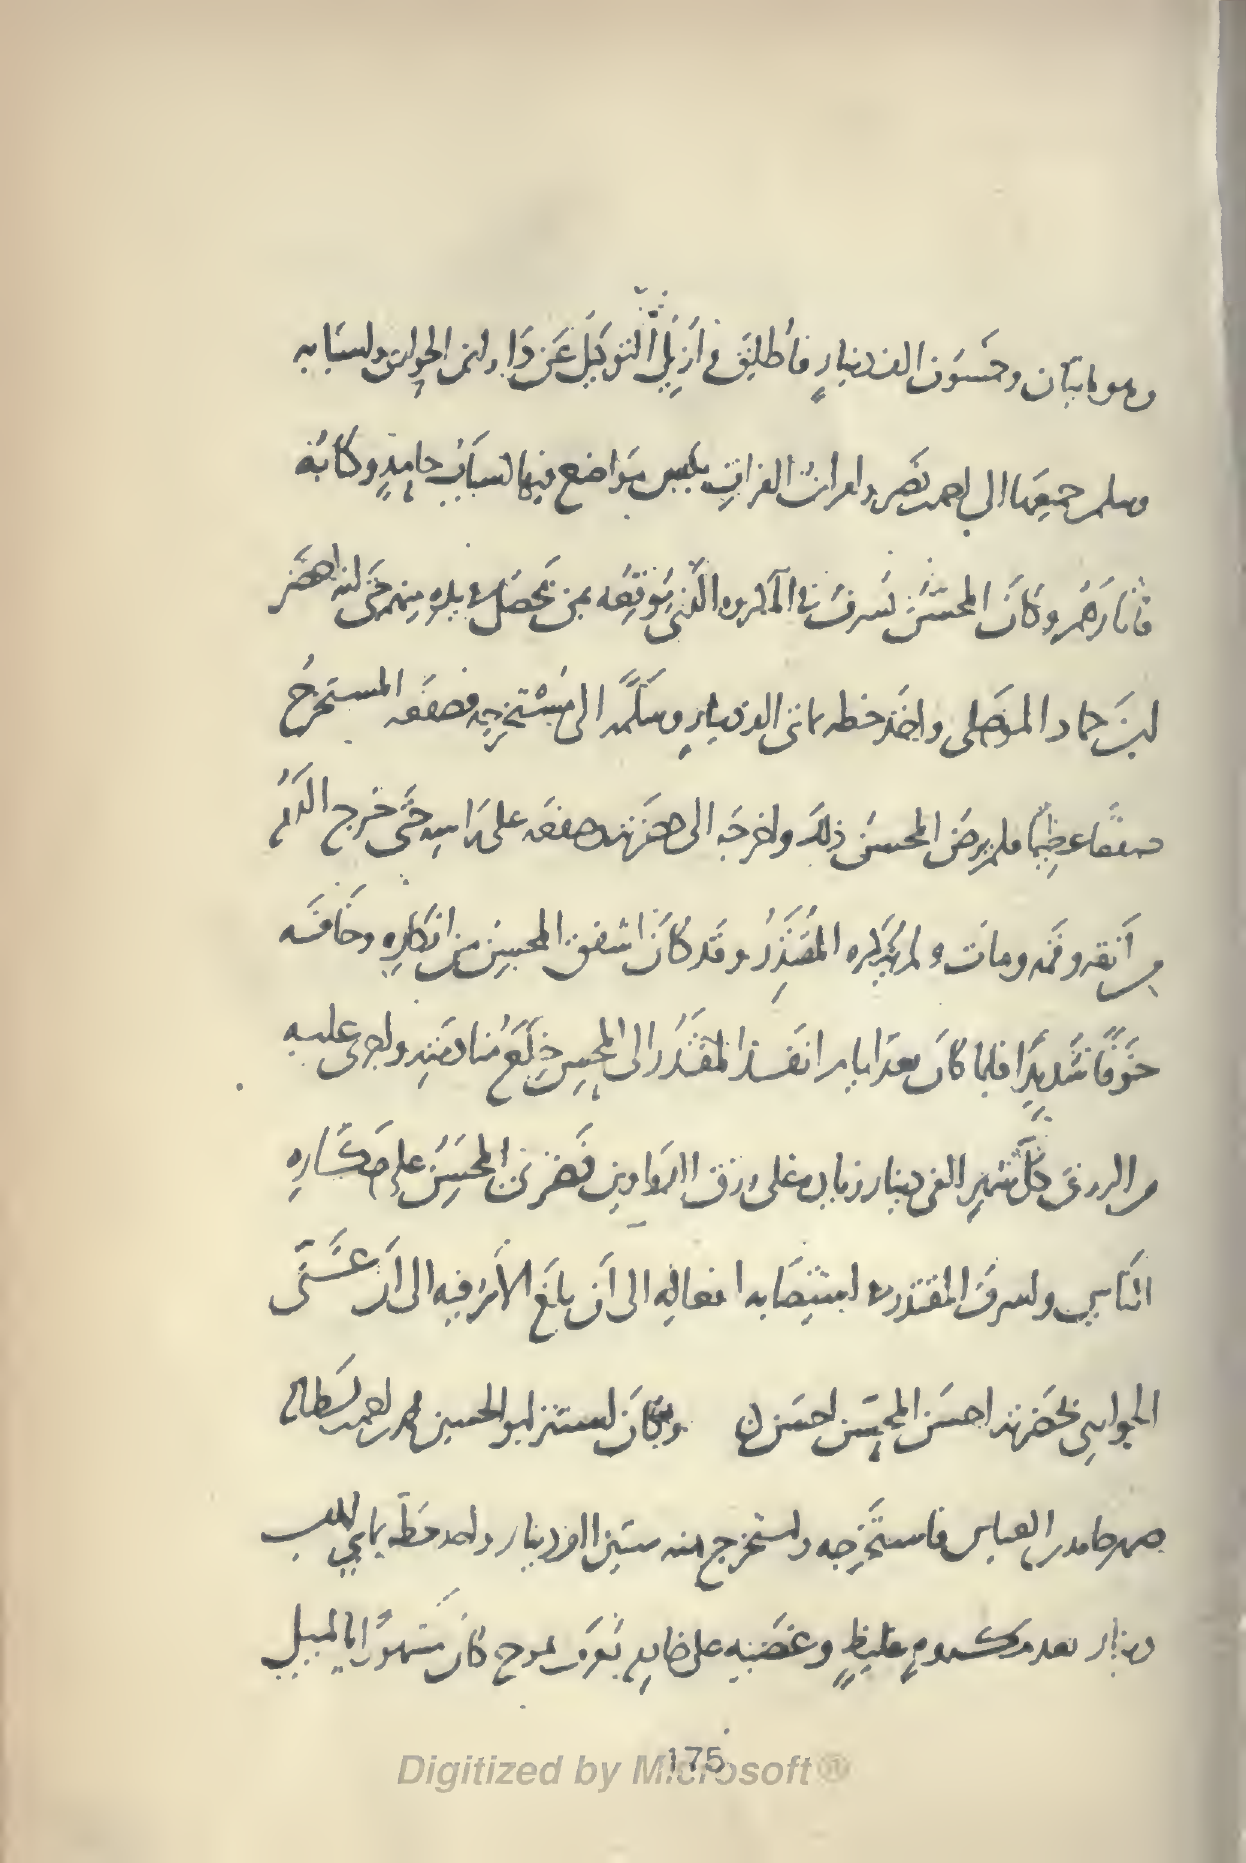 وهو مايتان وخمسون الف دينار فأطلق و ازيل التوكيل عن دار ابن الحواري واسبابه
وسلم جميعها الى احمد بن نصر وامر ابن الفرات بكبس مواضع فيها اسباب حامد وكتابه
فاثارهم وكان المحسن يسرف في المكروه الذي يوقعه بمن يحصل في يده منهم حتى انه احضر
ابن حماد الموصلي واخذ خطه بمائتي الف دينار وسلمه الى مستخرجه فصفعه المستخرج
صفعا عظيما فلم يرض المحسن ذلك واخرجه الى حضرته وصفعه على راسه حتى خرج الدم
من انفه وفمه ومات ولم يذكره المقتدر وقد كان اشفق المحسن من انكاره وخافه
خوفا شديدا فلما كان بعد ايام انفذ المقتدر الى المحسن خلع منادمته واجرى عليه
من الرزق كل شهر الفي دينار زيادة على رزق الدواوين فضري المحسن على مكاره
الناس واسرف المقتدر في استصابه افعاله الى ان بلغ الامر فيه الى ان غنى
الجواري بحضرته احسن المحسن احسن وكان استتر ابو الحسين محمد بن احمد بن بسطام
صهر حامد بن العباس فاستخرجه واستخرج منه ستين الف دينار واخذ خطه بمايتي الف
دينار بعد مكروه غليظ وغضبه على خادم يعرف بموج كان مشهورا بالميل
175
Digitized by Microsoft®